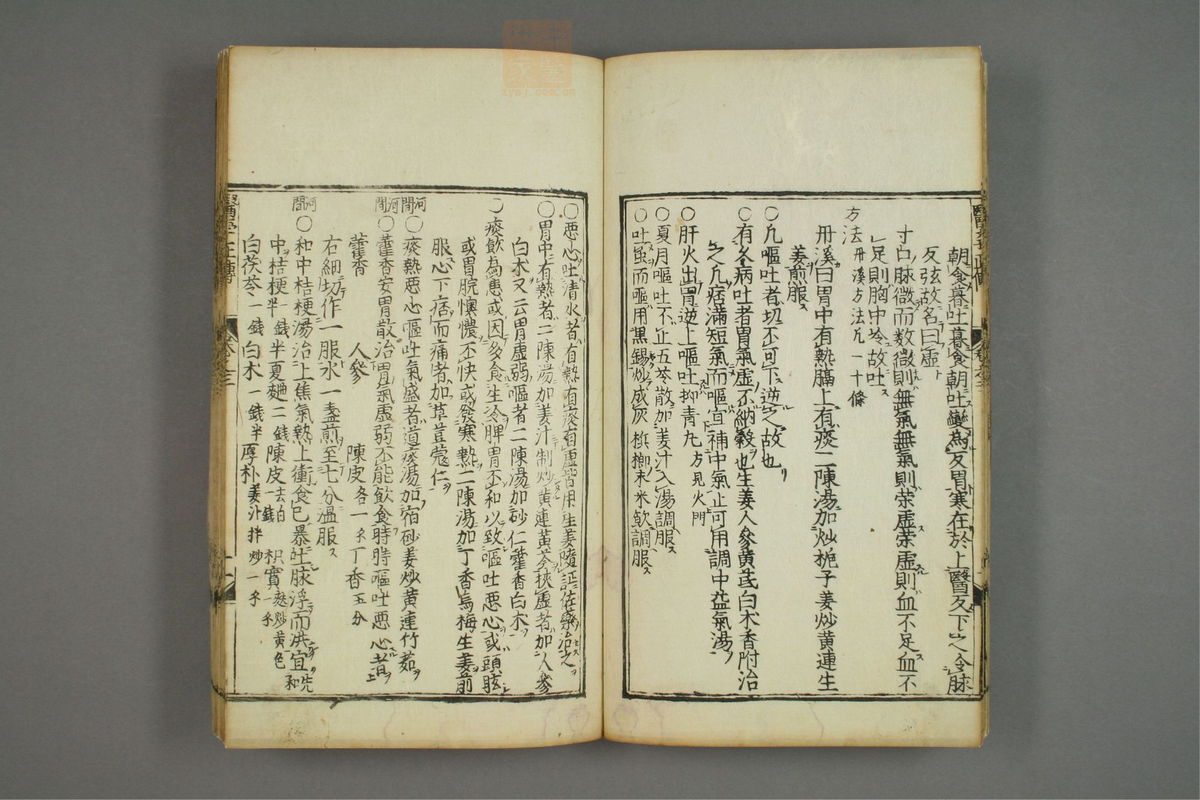 朝食暮吐暮食朝吐變為反胃寒在於上醫反下之今脉
反弦故名曰虛
寸口脉微而数微則無氣無氣則荣虛荣虛則血不足血不
足則胸中冷故吐
方法 丹溪方法凢一十條
丹溪曰胃中有熱膈上有痰二陳湯加炒梔子姜炒黄連生
姜煎服
〇凢嘔吐者切不可下逆之故也
〇有久病吐者胃氣虛不納穀也生姜人參黄芪白朮香附治
之凢痞滿短氣而嘔宜補中氣止可用調中益氣湯
〇肝火出胃逆上嘔吐抑青九方見火門
〇夏月嘔吐不止五苓散加姜汁入湯調服
〇吐蚘而嘔用黒錫炒成灰梹榔末米飲調服
〇悪心吐清水者有熱有痰有虛皆用生姜隨証佐藥治之
〇胃中有熱者二陳湯加姜汁制炒黄連黄芩挾虛者加人參
白朮又云胃虛弱嘔者二陳湯加砂仁藿香白朮
〇痰飲為患或因多食生冷脾胃不和以致嘔吐悪心或頭眩
或胃脘懊憹不快或發寒熱二陳湯加丁香烏梅生姜煎
服心下痞而痛者加草荳蔲仁
河間〇痰熱悪心嘔吐氣盛者道痰湯加宿砂姜炒黄連竹茹
河間〇藿香安胃散治胃氣虛弱不能飲食時時嘔吐悪心者
藿香 人參 陳皮各一錢 丁香五分
右細切作一服水一盞煎至七分溫服
河間〇和中桔梗湯治上焦氣熱上衝食已暴吐脉浮而洪宜先和
中桔梗一錢半 半夏麯二錢 陳皮去白一錢 枳實麩炒黄色一錢
白茯苓一錢 白朮一錢半 厚朴姜汁拌炒一錢
醫學正傳
卷之三